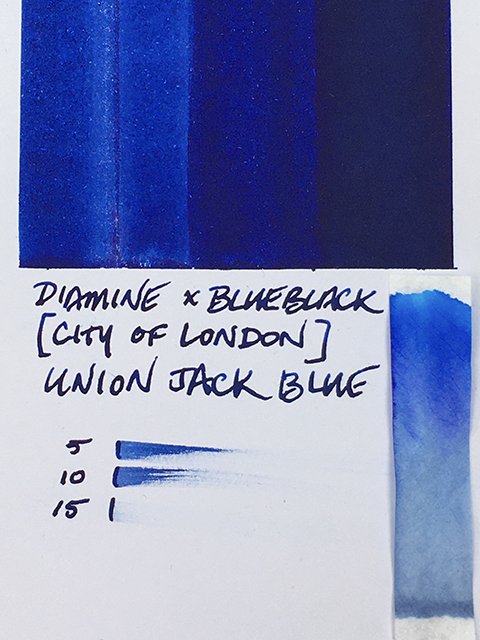 DIAMINE x BLUEBLACK
[CITY OF LONDON]
UNION JACK BLUE
5
10
15